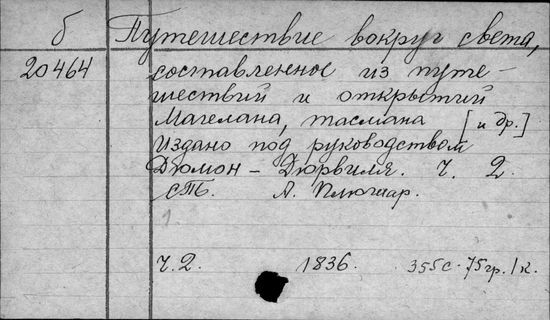 б Путешествие вокруг света,
20464 составленное из путе-
шествий и открытий
Магелана, тасмана [и др.]
Издано под руководством
Дюмон-Дюрвиля. Ч. 2.
СПБ. А. Плюшар.
1.
Ч.2. 1836. 355с. 75гр. 1к.